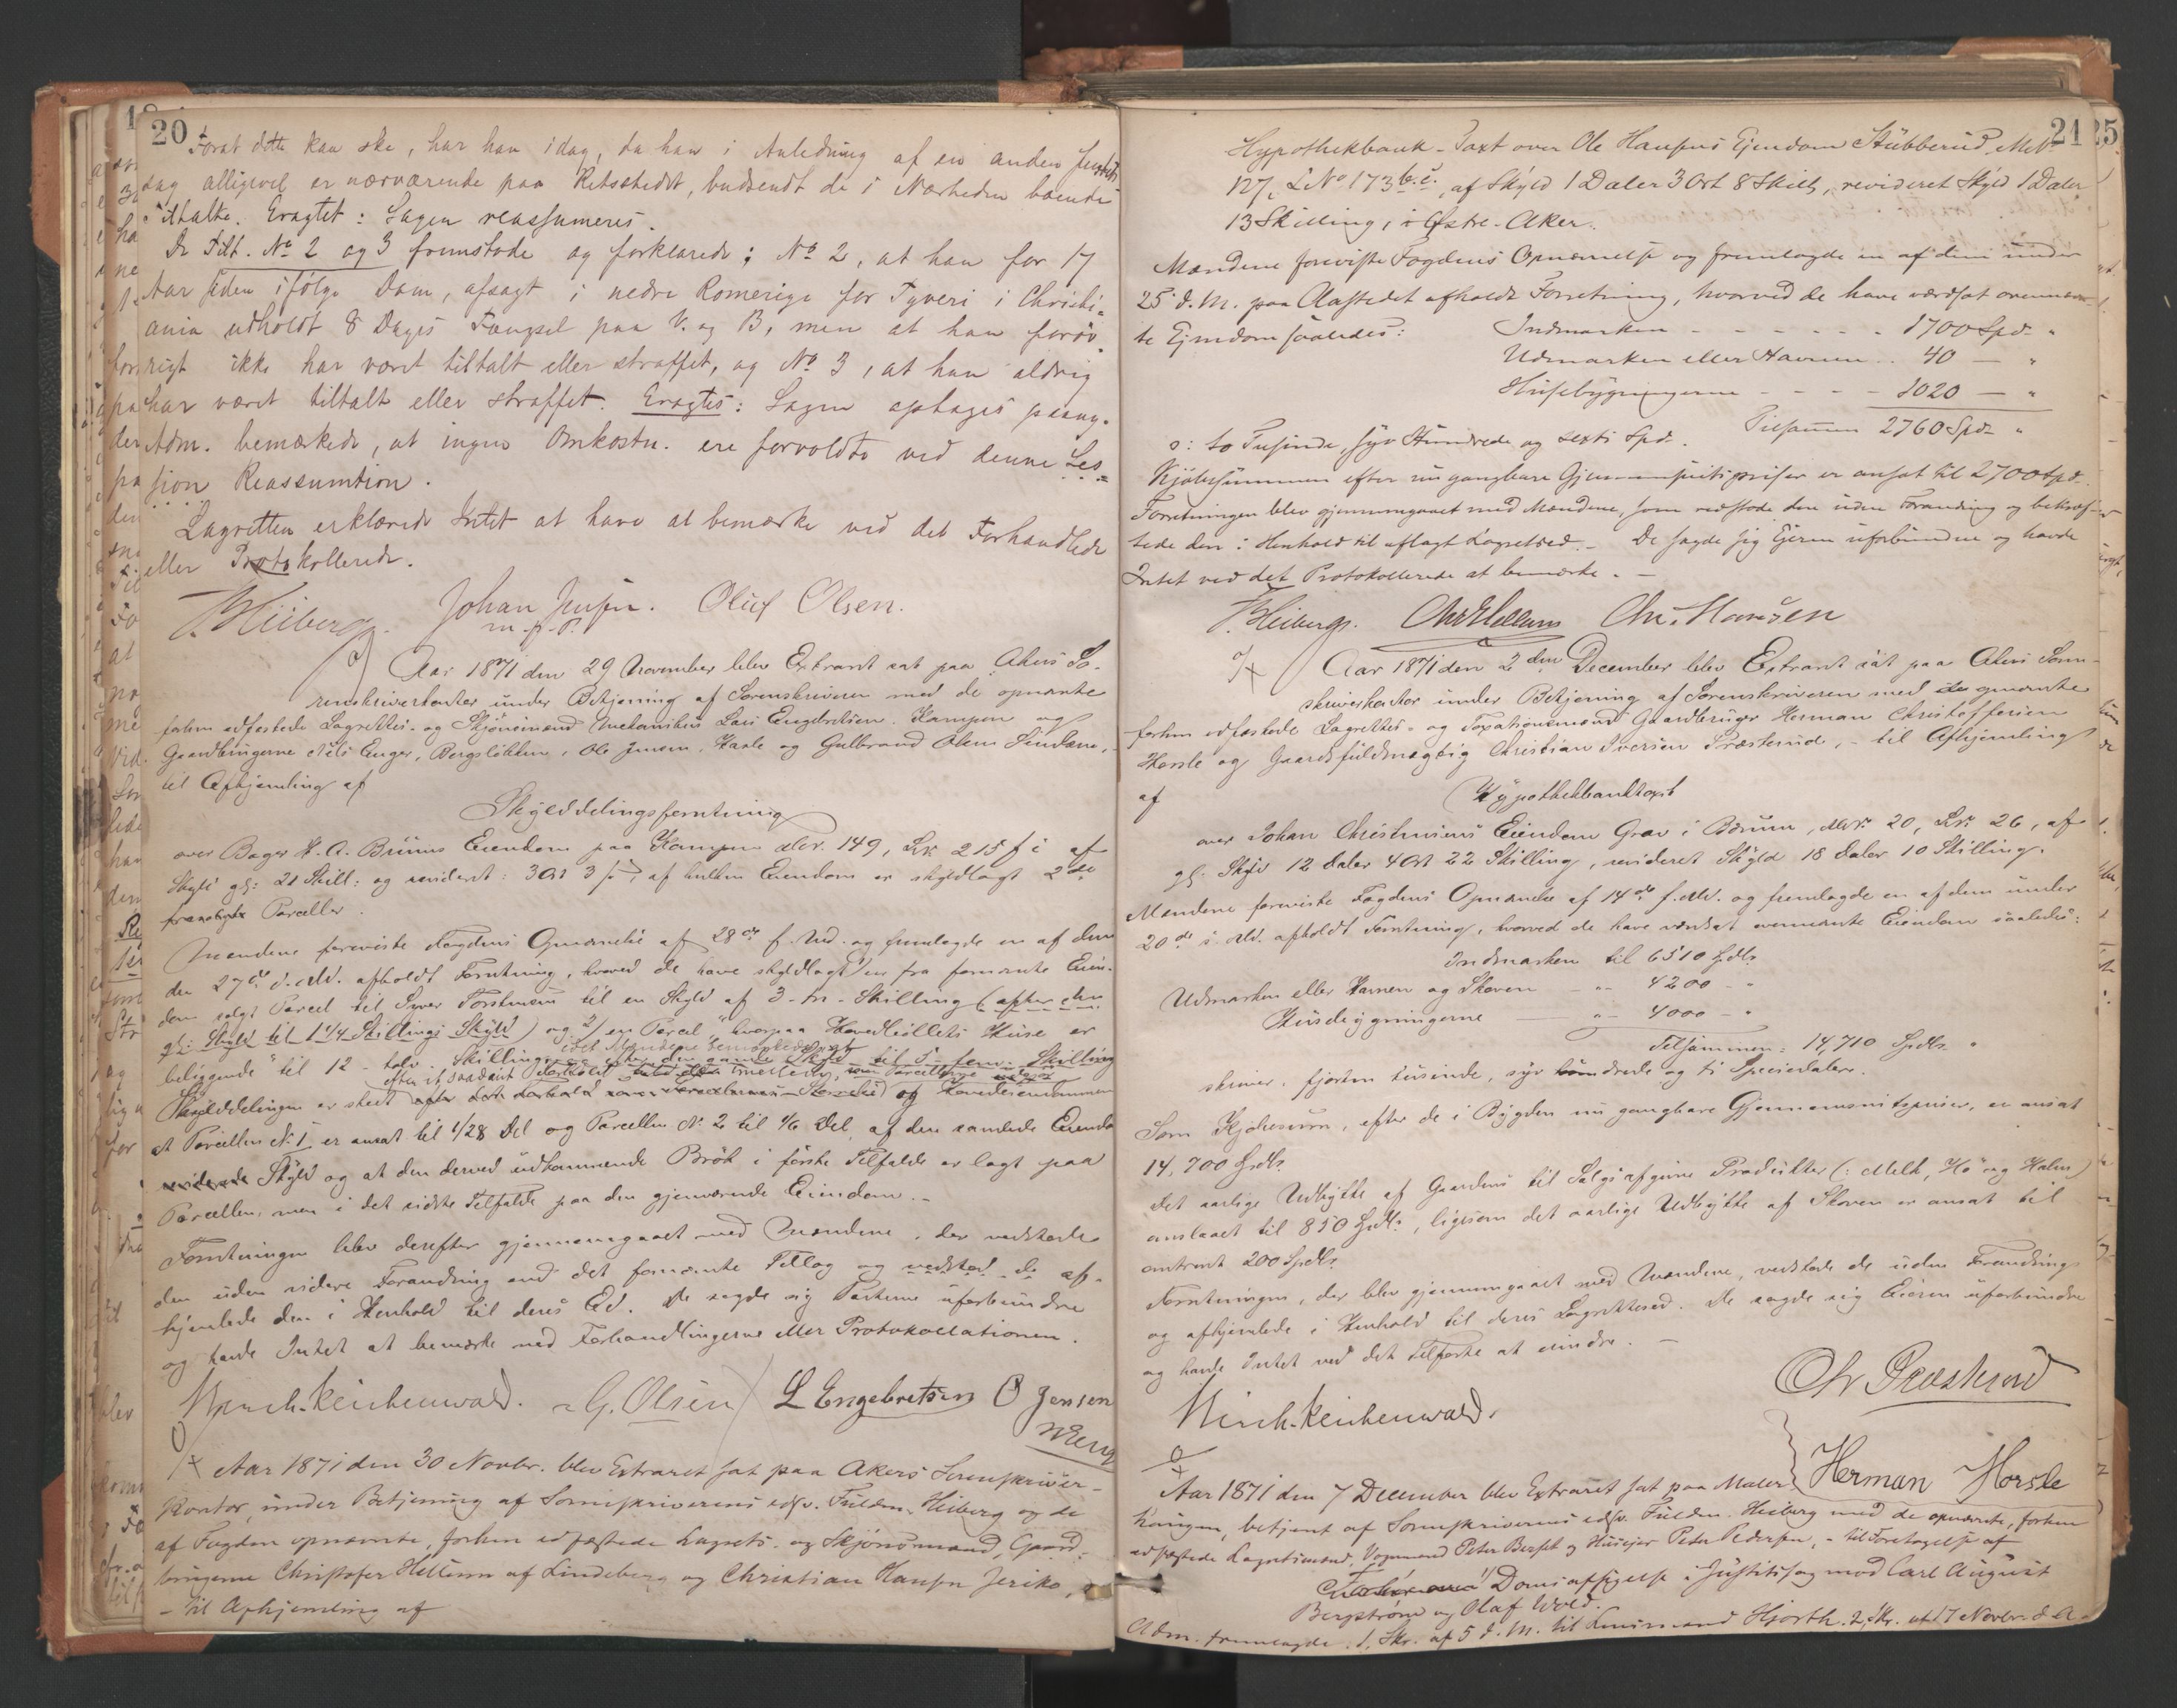 20
Forat dette kan ske, har han idag, da han i Anledning af en anden Justits
sag alligevel er nærværende paa Retsstedet, budsendt de i Nærheden boende
Tiltalte. Eragtet: Sagen reassumeres.
De Tilt. No 2 og 3 fremstode og forklarede: No 2, at han for 17
Aar siden ifølge Dom, afsagt i nedre Romerige for Tyveri i Christi=
ania udholdt 8 Dages Fængsel paa V. og B, men at han forøv
rigt ikke har været tiltalt eller straffet, og No 3, at han aldrig
har været tiltalt eller straffet. Eragtes: Sagen optages paany.
Adm. bemærkede, at ingen Omkostn. ere forvoldte ved denne Ses=
sion Reassumtion.
Lagretten erklærede Intet at have at bemærke ved det Forhandlede
eller Protokollerede.
T. Heiberg. Johan Jensen. Oluf Olsen.
m. p. P.
Aar 1871 den 29 November blev Extraret sat paa Akers So-
renskriverkontor under Betjening af Sorenskriveren med de opnævnte
forhen edfæstede Lagrettes- og Skjønsmænd Mechanikus Lars Engebretsen Kampen og
Gaardbrugerne Nils Enger, Bergsløkken, Ole Jensen, Hasle og Gulbrand Olsen
til Afhjemling af
Skylddelingsforretning
over Bager H. A. Bruuns Eiendom paa Kampen Mnr. 149, Lnr. 215 f i af
Skyld gl: 21 Skill: og revideret: 3 Ort 3 ß, af hvilken Eiendom er skyldlagt 2de
frasolgte Parceller.
Mændene foreviste Fogdens Opnævnelse af 28de f. Md. og fremlagde en af dem
den 27de d. Md. afholdt Forretning, hvorved de have skyldlagt en fra fornævnte Eien-
dom solgt Parcel til Syver Torstensen til en Skyld af 3 - tre - Skilling (efter den
gl: Skyld til 1 1/4 Skillings Skyld) og 2/ en Parcel, "hvorpaa Hovedbøllets Huse er
beliggende" til 12 - tolv - Skilling efter den gamle Skyld til 5 - fem - Skilling
idet Mændene bemærkede, at
Skylddelingen er skeet efter et saadant Forhold
at Parcellen No 1 er ansat til 1/28 Del og Parcellen No. 2 til 1/6 Del af den samlede Eiendoms
reviderede Skyld og at den derved udkommende Brøk i første Tilfælde er lagt paa
Parcellen, men i det sidste Tilfælde paa den gjenværende Eiendom.-
Forretningen blev derefter gjennemgaaet med Mændene, der vedstode
den uden videre Forandring end det fornævnte Tillæg og vedstod de af-
hjemlede den i Henhold til deres Ed. De sagde sig Parterne uforbundne
og havde Intet at bemærke ved Forhandlingerne eller Protokollationen.
Minch-Reichenwald. G. Olsen L Engebretsen O Jensen
N Eng
Aar 1871 den 30 Novbr. blev Extraret sat paa Akers Sorenskriver-
kontor, under Betjening af Sorenskriverens edsv. Fuldm. Heiberg og de
af Fogden opnævnte, forhen edfæstede Lagrets- og Skjønsmænd, Gaard-
brugerne Christofer Hellum af Lindeberg og Christian Hansen Jeriko,
- til Afhjemling af
21
Hypothekbank-Taxt over Ole Hansens Ejendom Stubberud Mnr
127, L No 173 b.c., af Skyld 1 Daler 3 Ort 8 Skill, revideret Skyld 1 Daler
13 Skilling, i Østre-Aker.
Mændene foreviste Fogdens Opnævnelse og fremlagde en af dem under
25 d. M. paa Aastedet afholdt Forretning, hvorved de have værdsat ovennævn-
te Ejendom saaledes: Indmarken - - - - - - 1700 Spd. "
Udmarken eller Havnen - - 40 — "
Husebygningerne - - - - 1020 — "
Tilsammen 2760 Spd "
o: to Tusinde, syv Hundrede og sexti Spd.
Kjøbesummen efter nu gangbare Gjennemsnitspriser er ansat til 2700 Spd.
Forretningen blev gjennemgaaet med Mændene, som vedstode den uden Forandring og bekræf-
tede den i Henhold til aflagt Lagretsed. - De sagde sig Ejeren uforbundne og havde
Intet ved det Protokollerede at bemærke. -
T. Heiberg. Chr Hellum Chr. Hansen
Aar 1871 den 2den December blev Extraret sat paa Akers Soren-
skriverkontor under Betjening af Sorenskriveren med de opnævnte
forhen edfæstede Lagrettes- og Taxationsmænd Gaardbruger Herman Christoffersen
Horsle og Gaardsfuldmægtig Christian Iversen Præsterud, - til Afhjemling
af Hypothekbanktaxt
over Johan Christensens Eiendom Grav i Bærum, Mnr. 20, Lnr. 26, af
gl. Skyld 12 Daler 4 Ort 22 Skilling, revideret Skyld 18 Daler 10 Skilling.
Mændene foreviste Fogdens Opnævnelse af 14de f. Md. og fremlagde en af dem under
20de s. Md. afholdt Forretning, hvorved de have værdsat ovennævnte Eiendom saaledes:
Indmarken til 6510 Spdlr
Udmarken eller Havnen og Skoven — " — 4200 - "
Husebygningerne — " — 4000 - "
Tilsammen: 14,710 Spdlr. "
skriver: fjorten tusinde, syv hundrede og ti Speciedaler.
Som Kjøbesum, efter de i Bygden nu gangbare Gjennemsnitspriser, er ansat
14,700 Spdlr.
Det aarlige Udbytte af Gaardens til Salgs afgivne Produkter (: Melk, Hø og Halm)
anslaaet til 850 Spdlr., ligesom det aarlige Udbytte af Skoven er ansat til
omtrent 200 Spdlr.
Forretningen, der blev gjennemgaaet med Mændene, vedstode de uden Forandring
og afhjemlede i Henhold til deres Lagrettesed. De sagde sig Eieren uforbundne
og havde Intet ved det Tilførte at erindre. -
Chr Præsterud
Minch-Reichenwald.
Herman Horsle
Aar 1871 den 7 December blev Extraret sat paa Maler-
haugen, betjent af Sorenskriverens edsv. Fuldm. Heiberg med de opnævnte, forhen
edfæstede Lagretsmænd, Vognmand Peter Berset og Husejer Peder Pedersen, - til Foretagelse af
Domsafsigelse i Justitssag mod Carl August
Bergstrøm og Olaf Wold.
Adm. fremlagde 1, Skr. af 5 d. M. til Lensmand Hjorth. 2, Skr. af 7 Novbr. d. A